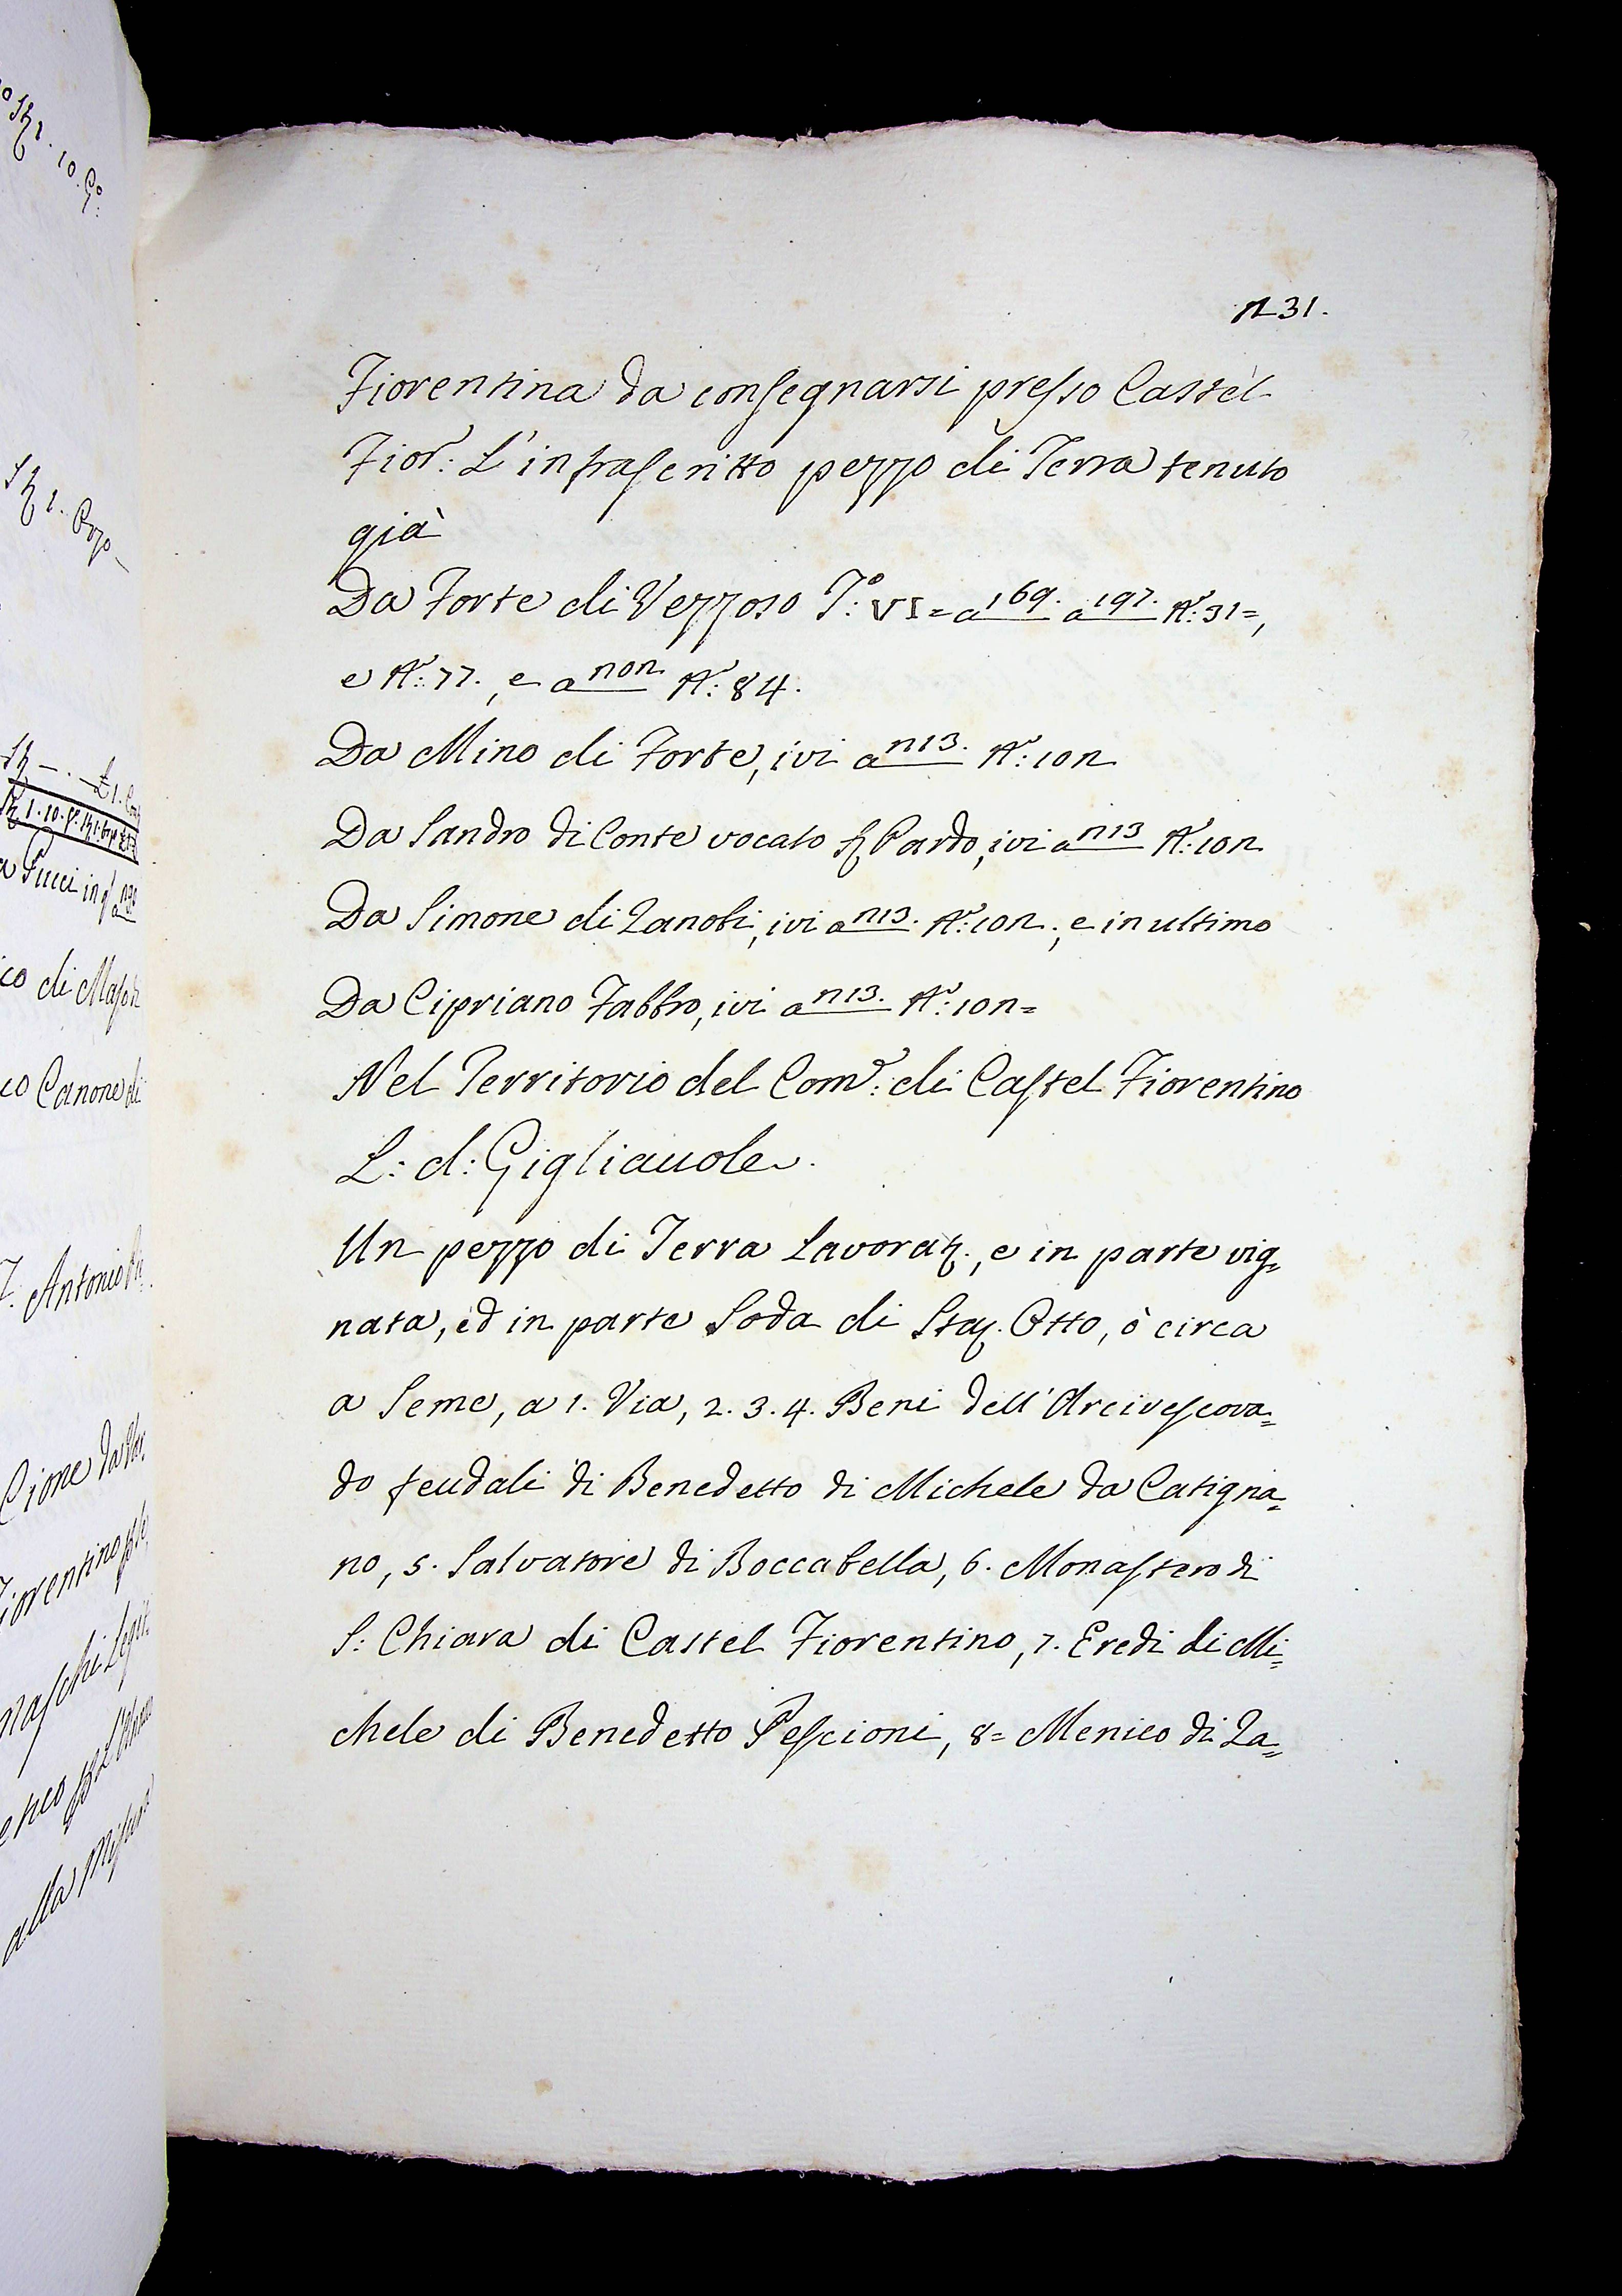 n31.
Fiorentina da consegnarsi presso Castel
Fior: L'infrascritto pezzo di Terra tenuto
già
Da Forte di Vezzoso T.º VI= a 169. a 197. Nº: 31=,
e Nº: 77., e a non Nº: 84.
Da Mino di Forte, ivi a n13. Nº: 10n
Da Sandro di Conte vocato Pardo, ivi a n13 Nº: 10n
Da Simone di Zanobi, ivi a n13. Nº: 10n., e in ultimo
Da Cipriano Fabbro, ivi a n13. Nº: 10n=
Nel Territorio del Com.e: di Castel Fiorentino
L: d: Gigliauole.
Un pezzo di Terra Lavorat., e in parte vig=
nata, ed in parte Soda di Sta. Otto, ò circa
a Seme, a 1. Via, 2. 3. 4. Beni dell'Arcivescova=
do feudali di Benedetto di Michele da Catigna=
no, 5. Salvatore di Boccabella, 6. Monastero di
S: Chiara di Castel Fiorentino, 7. Eredi di Mi=
chele di Benedetto Pescioni, 8= Menico di Za=